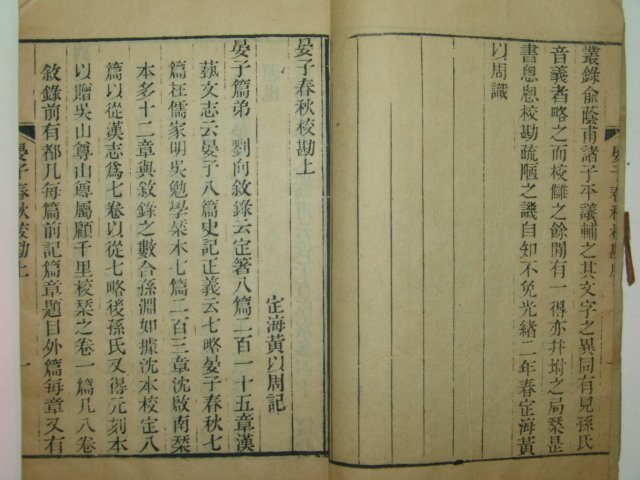 叢錄俞蔭甫諸子平議輔之其文字之異同有見孫氏
音義者略之而校讎之餘閒有一得亦幷坿之局槧是
書悤悤校勘疏陋之譏自知不免光緒二年春定海黃
以周識
晏子春秋校勘上
定海黃以周記
晏子篇弟 劉向敘錄云定箸八篇二百一十五章漢
蓺文志云晏子八篇史記正義云七略晏子春秋七
篇在儒家明吳勉學槧本七篇二百三章沈啟南槧
本多十二章與敘錄之數合孫淵如據沈本校定八
篇以從漢志爲七卷以從七略後孫氏又得元刻本
以贈吳山尊山尊屬顧千里校槧之卷一篇凡八卷
敘錄前有都凡每篇前記篇章題目外篇每章又有
晏子春秋校勘上
一